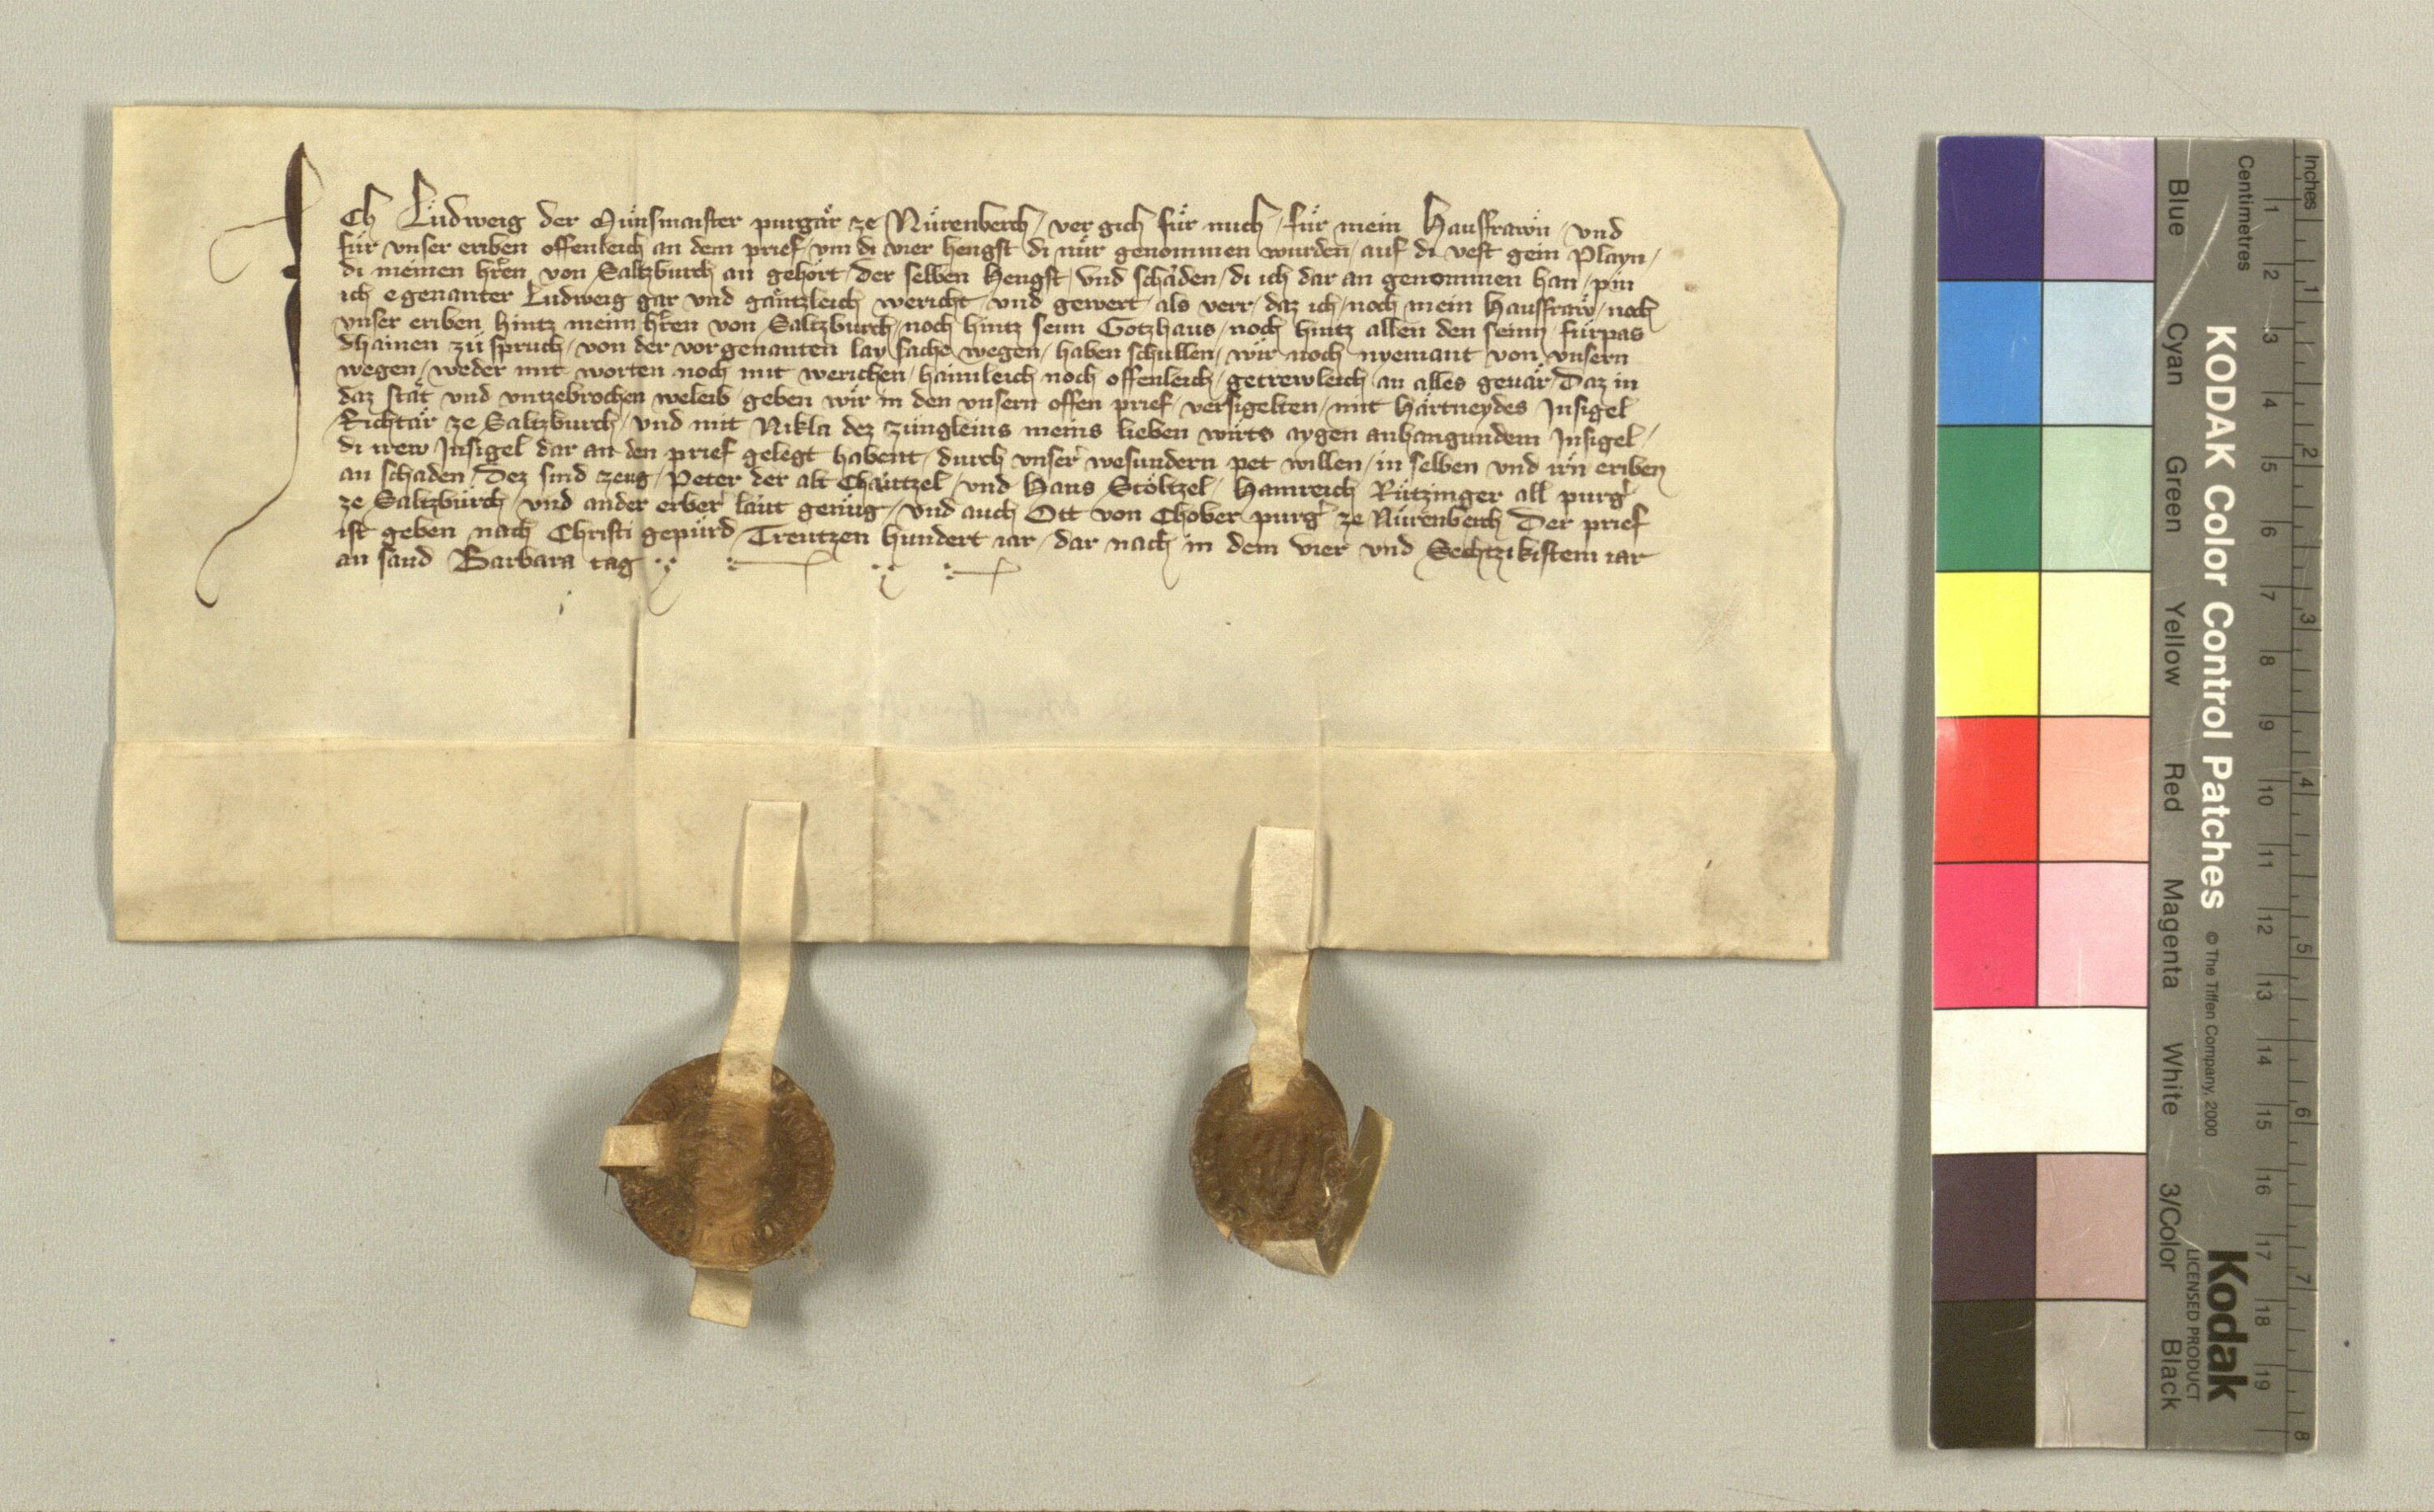 Ich Ludweig der Münsmaister purgär ze Nürenberch / ver gich für mich / für mein Hausfrawn / vnd
für vnser eriben offenleich an dem prief / vm di vier hengst di mir genommen wurden / auf di vest gein Playn /
di meinen hren von Saltzburch an gehört / der selben Hengst / vnd schäden / di ich dar an genommen han / pin
ich egenanter Ludweig gar vnd gäntzleich wericht / vnd gewert / als verr / daz ich / noch mein Hausfraw / noch
vnser eriben hintz meim hren von Saltzburch / noch hintz seim Gotzhaus / noch hintz allen den seinn / fürpas
dhainen zü spruch / von der vorgenanten lay sache wegen / haben schullen / wir noch nyemant von vnsern
wegen / weder mit worten noch mit werichen / haimleich noch offenleich / getrewleich an alles geuär / Daz in
daz stät vnd vntzebrochen weleib / geben wir in den vnsern offen prief / versigelten / mit Härtneydes Insigel
Richtär ze Saltzburch / vnd mit Nikla dez züngleins meins lieben wirts aygen anhangundem Insigel /
di irew Insigel dar an den prief gelegt habent / durch vnser wesundern pet willen / in selben vnd irn eriben
an schaden / Dez sind zeug / Peter der alt Chäutzel / vnd Hans Stöltzel / Hainreich Rützinger all purg
ze Saltzburch / vnd ander erber läut genüg / vnd auch Ott von Chober purg ze Nürenberch Der prief
ist geben nach Christi gepürd / Treutzen hundert iar / dar nach in dem vier vnd Sechtzikistem iar
an sand Barbara tag
Inches
Centimetres
1 2 3 4 5 6 7 8
1 2 3 4 5 6 7 8 9 10 11 12 13 14 15 16 17 18 19
KODAK Color Control Patches
© The Tiffen Company, 2000
Kodak
LICENSED PRODUCT
Blue Cyan Green Yellow Red Magenta White 3/Color Black